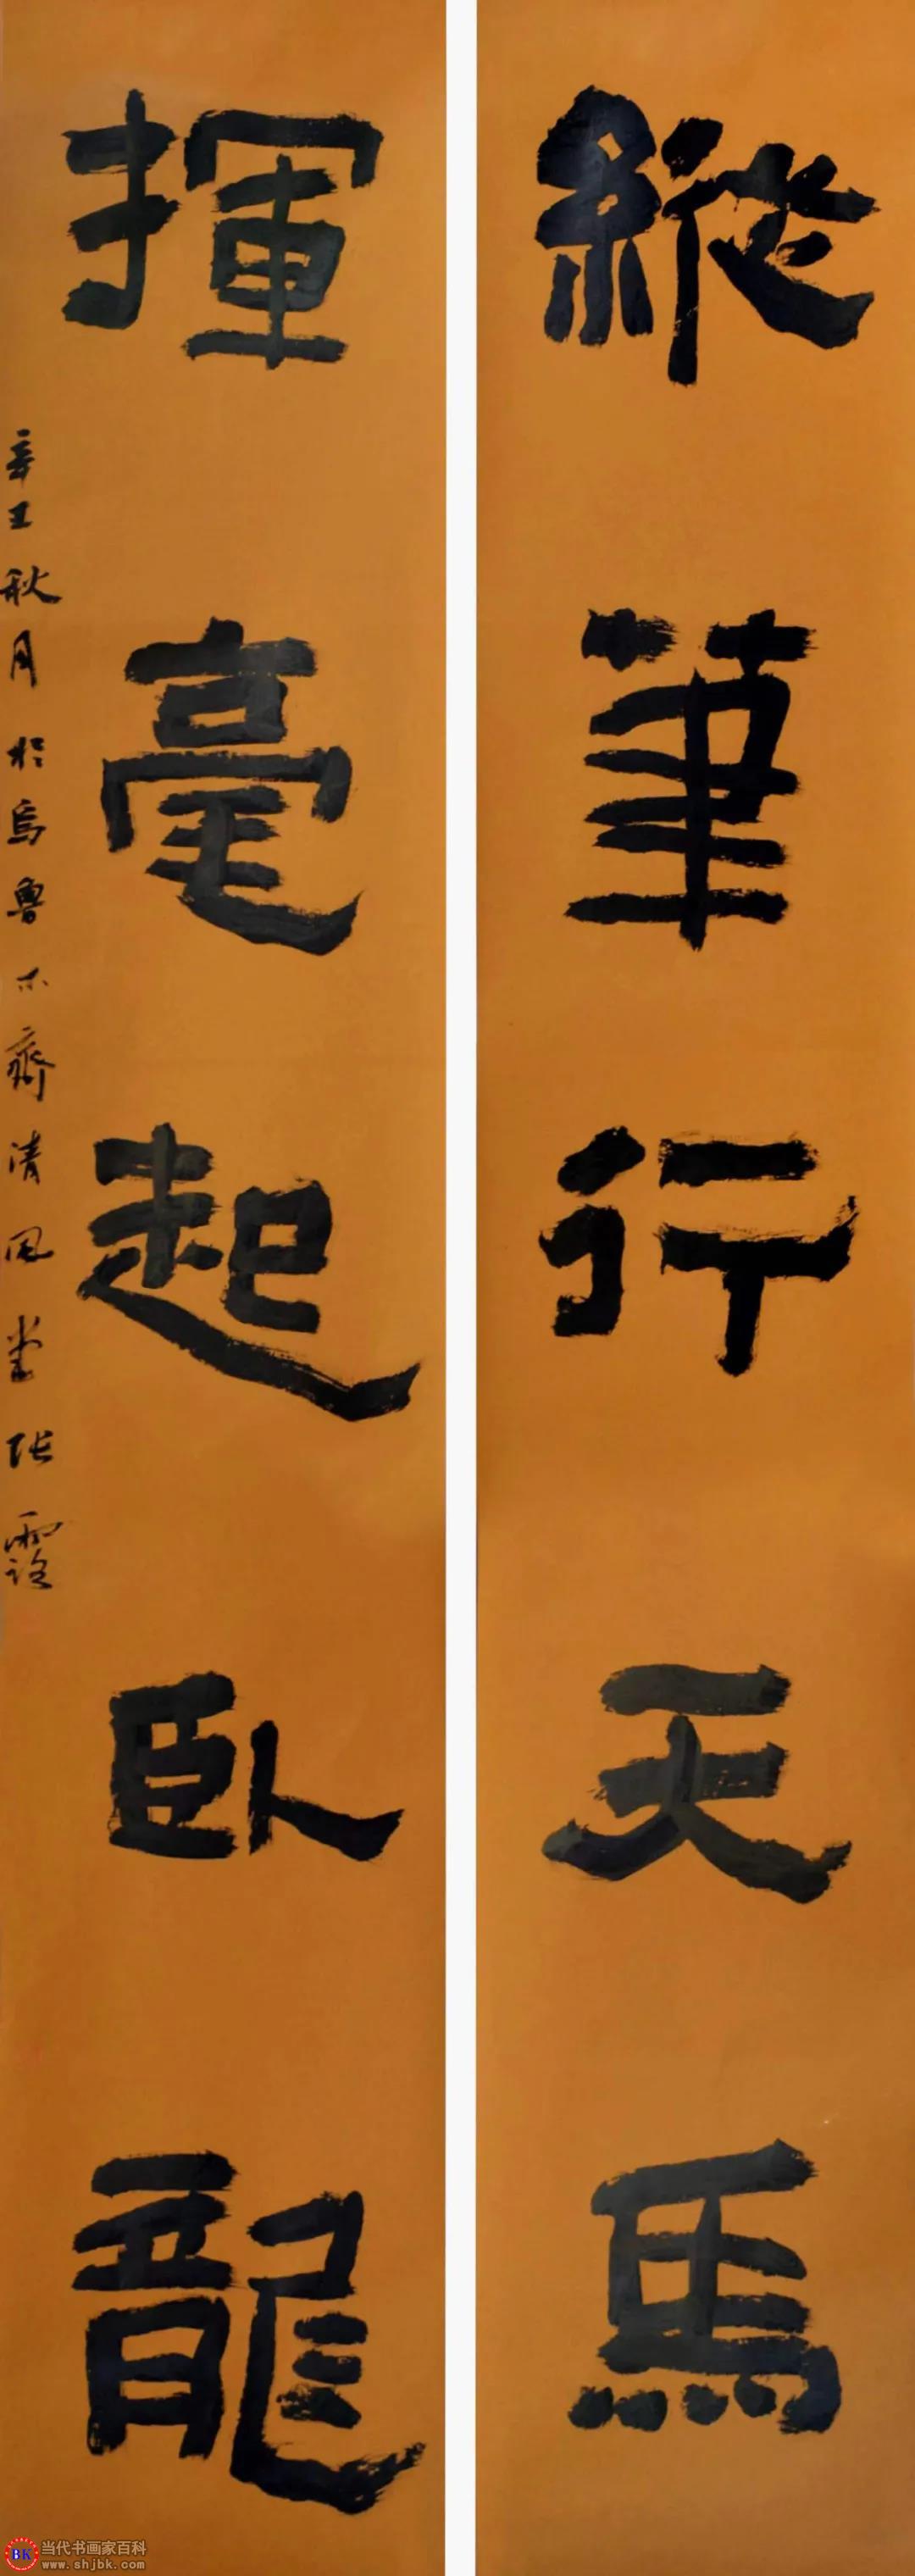 縱筆行天馬
揮毫起臥龍
辛丑秋月於烏魯木齊清風堂張露
BK 当代书画家百科
www.shjbk.com